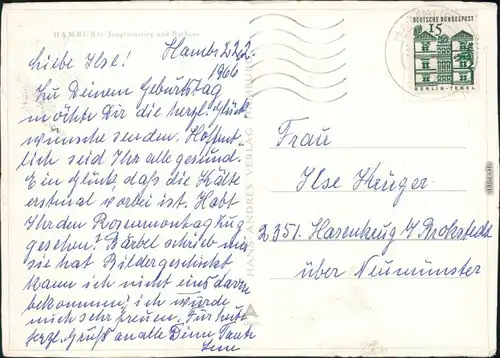 HAMBURG Jungfernstieg und Rathaus
Hambg 22.2.
1966
Liebe Ilse!
Zu Deinem Geburtstag
möchte Dir die herzl. Glück
wünsche senden. Hoffent-
lich seid Ihr alle gesund.
Ein Glück, daß die Kälte
erstmal vorbei ist. Habt
Ihr den Rosenmontagzug
gesehen? Bärbel schrieb mir
sie hat Bilder geschickt
kann ich nicht eins davon
bekommen, ich würde
mich sehr freuen. Für heute
herzl. Gruß an alle Deine Tante
HANS ANDRES VERLAG HAMBURG
DEUTSCHE BUNDESPOST
15
BERLIN-TEGEL
Frau
Ilse Krüger
2351. Hasenkrug b/ Brokstedt
über Neumünster